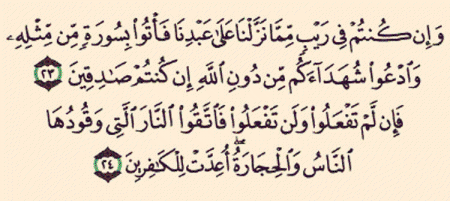 وَإِن كُنتُمْ فِى رَيْبٍ مِّمَّا نَزَّلْنَا عَلَىٰ عَبْدِنَا فَأْتُوا۟ بِسُورَةٍ مِّن مِّثْلِهِۦ
وَٱدْعُوا۟ شُهَدَآءَكُم مِّن دُونِ ٱللَّهِ إِن كُنتُمْ صَـٰدِقِينَ ٢٣
فَإِن لَّمْ تَفْعَلُوا۟ وَلَن تَفْعَلُوا۟ فَٱتَّقُوا۟ ٱلنَّارَ ٱلَّتِى وَقُودُهَا
ٱلنَّاسُ وَٱلْحِجَارَةُ ۖ أُعِدَّتْ لِلْكَـٰفِرِينَ ٢٤